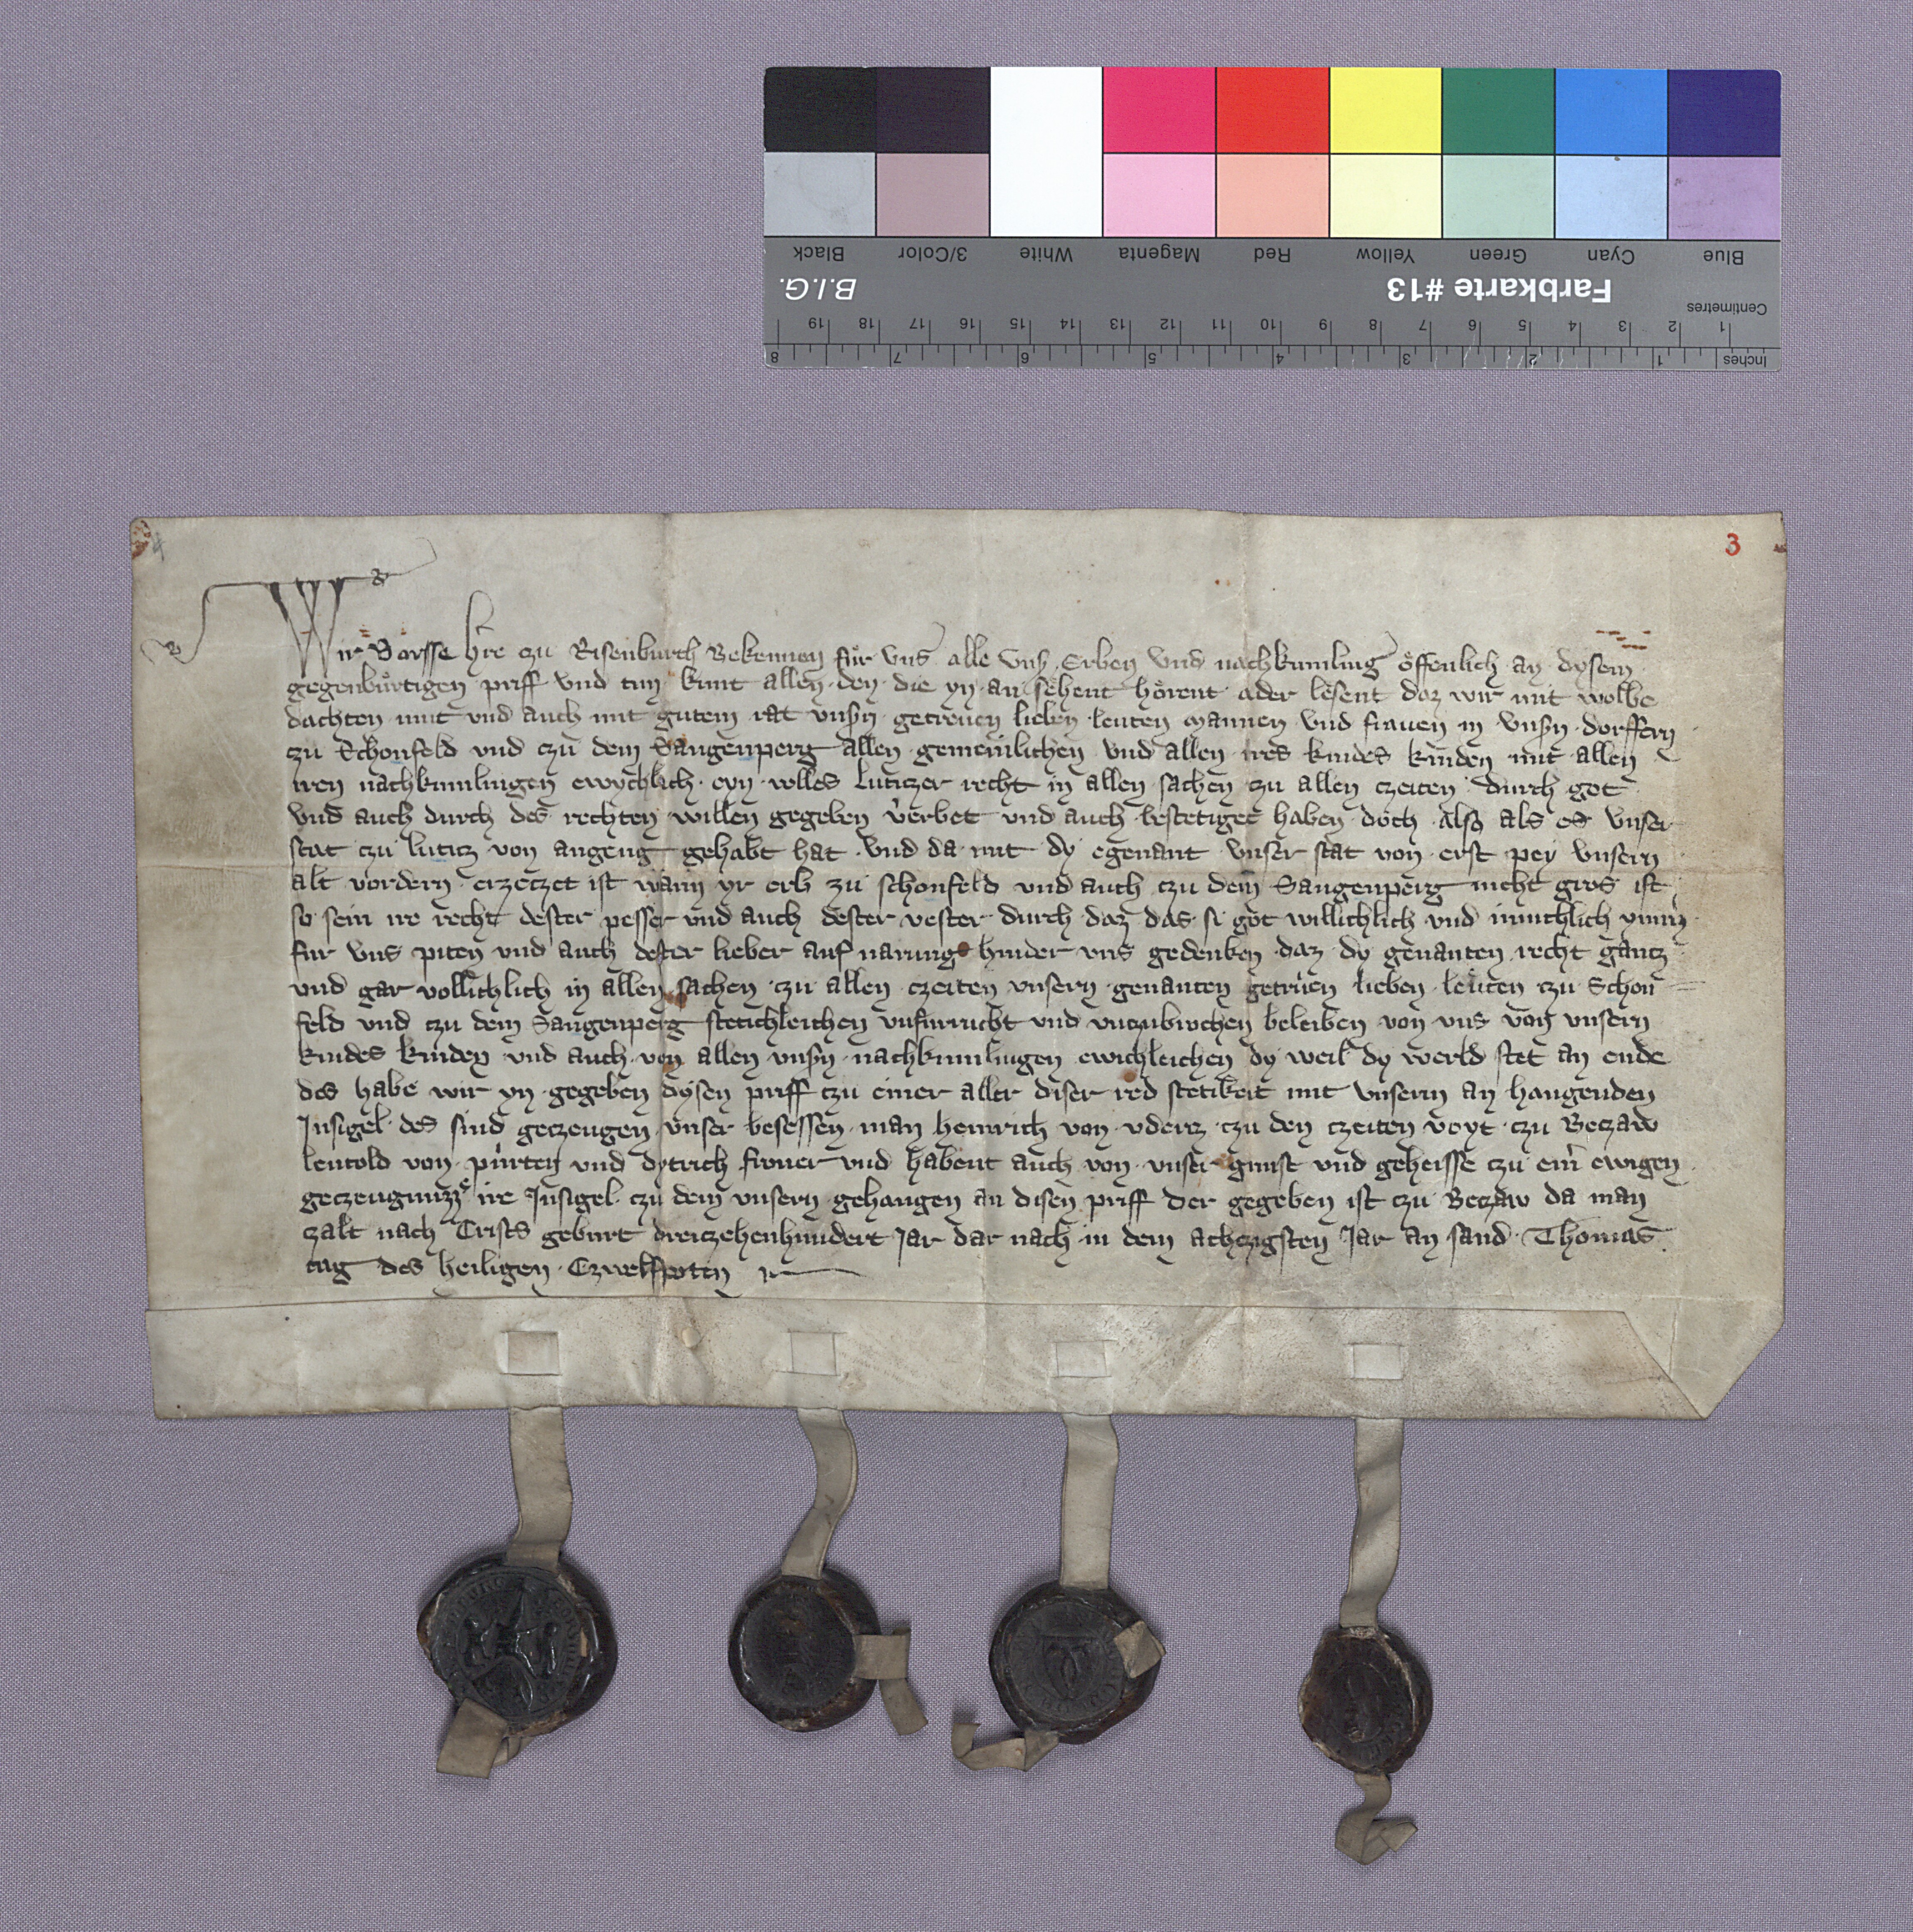 Black 3/Color White Magenta Red Yellow Green Cyan Blue
B.I.G. Farbkarte #13
Centimetres 1 2 3 4 5 6 7 8 9 10 11 12 13 14 15 16 17 18 19
Inches 1 2 3 4 5 6 7 8
4
3
Wir Borsse h̄re czu Risenburch Bekennen für vns alle vnß Erben vnd nachkumling öffenlich an dysem
gegenbürtigen priff vnd tun kunt allen den die yn an sehent hörent ader lesent daz wir mit wolbe
dachten mut vnd auch mit gutem rat vnsßn getreuen lieben leuten mannen vnd frauen in vnsßn dorffern
zu Schonfeld vnd czu dem Sangenperg allen gemeinlichen vnd allen ires kindes kinden mit allen
iren nachkumlingen ewychlich eyn volles luticzer recht in allen sachen zu allen czeiten durch got
vnd auch durch des rechten willen gegeben verbet vnd auch bestetiget haben doch also als es vnser
stat czu luticz von angeng gehabt hat vnd da mit dy egenant vnser stat von erst pey vnsern
alt vordern erzeczet ist wann yr erb zu schonfeld vnd auch czu dem Sangenperg nicht gros ist
so sein ire recht dester pesser vnd auch dester vester durch daz das si got willichlich vnd innichlich
fur vns piten vnd auch dester lieber auf narung hinder vns gedenken daz dy genanten recht gancz
vnd gar vollichlich in allen sachen czu allen czeiten vnsern genanten getruen lieben leuten czu Schon
feld vnd czu dem Sangenperg stetichleichen vnfurruckt vnd vnczubrochen beleiben von vns von vnsern
kindes kinden vnd auch von allen vnsßn nachkumlingen ewichleichen dy weil dy werld stet an ende
des habe wir yn gegeben dysen priff czu einer aller diser red stetikeit mit vnserm an hangenden
Insigel des sind geczeugen vnser besessen man heinrich von vdercz czu den czeiten voyt czu Beczaw
leutold von pürten vnd dytrich firner vnd habent auch von vnser gunst vnd geheisse czu eim ewigen
geczeugnuzze ire Insigel czu dem vnsern gehangen an disen priff Der gegeben ist czu Beczaw da man
czalt nach Crists geburt dreiczehenhundert Jar dar nach in dem achczigsten Jar an sand Thomas
tag des heiligen Czwelfpoten